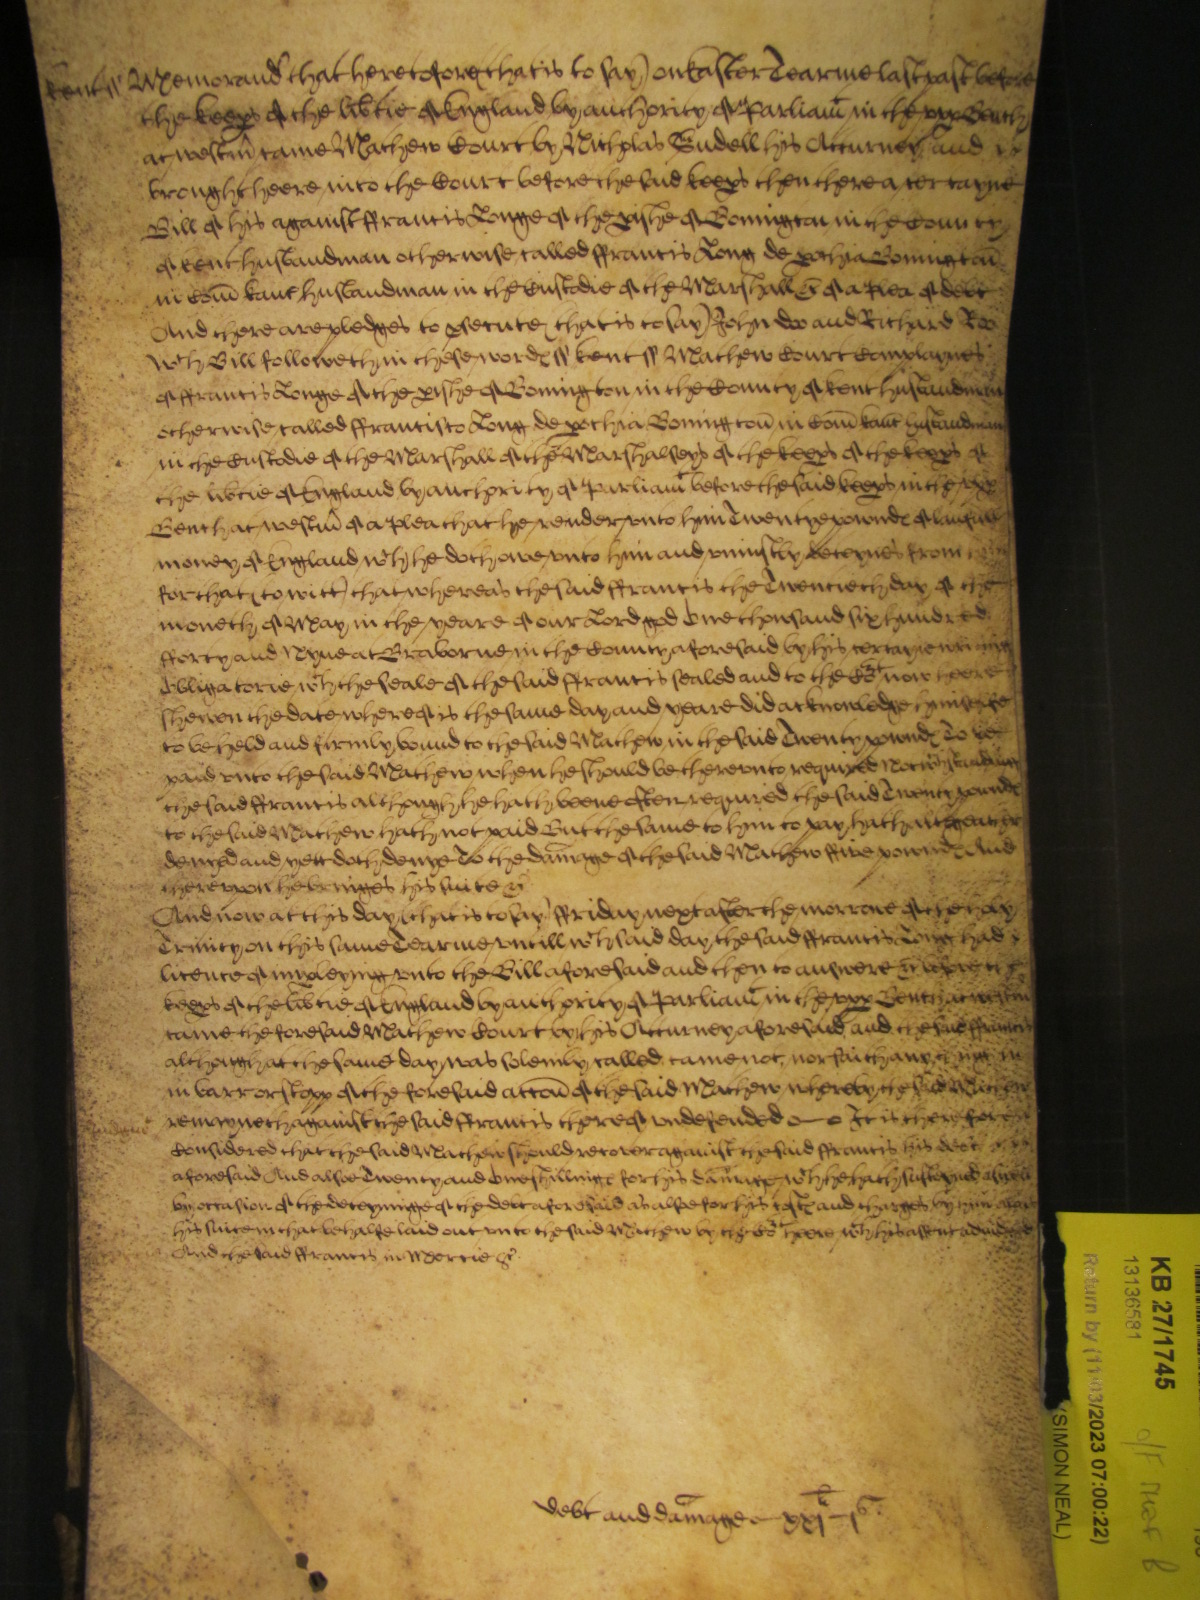 Kent ss Memorand that heretofore that is to say on Easter Tearme last past before
the keeps of the lib̄tie of England by authority of Parliam̄ in the vpp Bench
at westm̄ came Mathew Court by Nicholas Tudell his Atturney and
brought heere into the Court before the said keeps then there a certayne
Bill of his against ffrancis Longe of the pishe of Bonington in the County
of Kent husbandman otherwise called ffrancis Long de pochia Bonington
in Com̄ Kanc husbandman in the Custodie of the Marshall &c of a plea of debt
And there are pledges to psecute that is to say John Doo and Richard Roo
wch Bill followeth in these word ss Kent ss Mathew Court Complaynes
of ffrancis Longe of the pishe of Bonington in the County of Kent husbandman
otherwise called ffrancisco Long de pochia Bonington in Com̄ Kanc husbandman
in the Custodie of the Marshall of the Marshalseys of the keeps of the keeps of
the lib̄tie of England by authority of Parliam̄ before the said keeps in the vpp
Bench at westm̄ of a plea that he render vnto him Twentye pownd of lawfull
money of England wch he doth owe vnto him and vniustly deteynes from
for that to witt that whereas the said ffrancis the Twentieth day of the
moneth of May in the yeare of our Lord god One thousand six hundred
fforty and Nyne at Braborne in the County aforesaid by his certayne writing
Obligatorie wch the seale of the said ffrancis sealed and to the Cort now heere
shewen the date whereof is the same day and yeare did acknowledge himselfe
to be held and firmly bound to the said Mathew in the said Twenty pownd To be
paid vnto the said Mathew when he should be therevnto required Notwthstanding
the said ffrancis although he hath beene often required the said Twenty pownd
to the said Mathew hath not paid But the same to him to pay hath altogeather
denyed and yett doth denye To the dam̄age of the said Mathew ffive pownd And
therevpon he bringes his suite &c
And now at this day that is to say ffriday next after the morrow of the holy
Trinity on this same Tearme vntill wch said day the said ffrancis Long had
licence of impleying vnto the Bill aforesaid and then to answere &c before the
keeps of the lib̄tie of England by authority of Parliam̄ in the vpp Bench at westm̄
came the foresaid Mathew Court by his Atturney aforesaid and the said ffrancis
although at the same day was solemly called came not nor saith any thing in
in barr or stopp of the foresaid accon̄ of the said Mathew whereby the said Mathew
remayneth against the said ffrancis thereof vndefended It is therefore
Considered that the said Mathew should recover against the said ffrancis his debt
aforesaid And alsoe Twenty and One shillinge for his dam̄age wch he hath susteyned aswell
by occasion of the deteyninge of the debt aforesaid as alsoe for his cost and charges by him about
his suite in that behalfe laid out vnto the said Mathew by the Cort heere wth his assent adiudged
And the said ffrancis in Mercie &c
Debt and dam̄age xxj li j s
KB 27/1745
13136581
Return by (11/03/2023 07:00:22)
(SIMON NEAL)